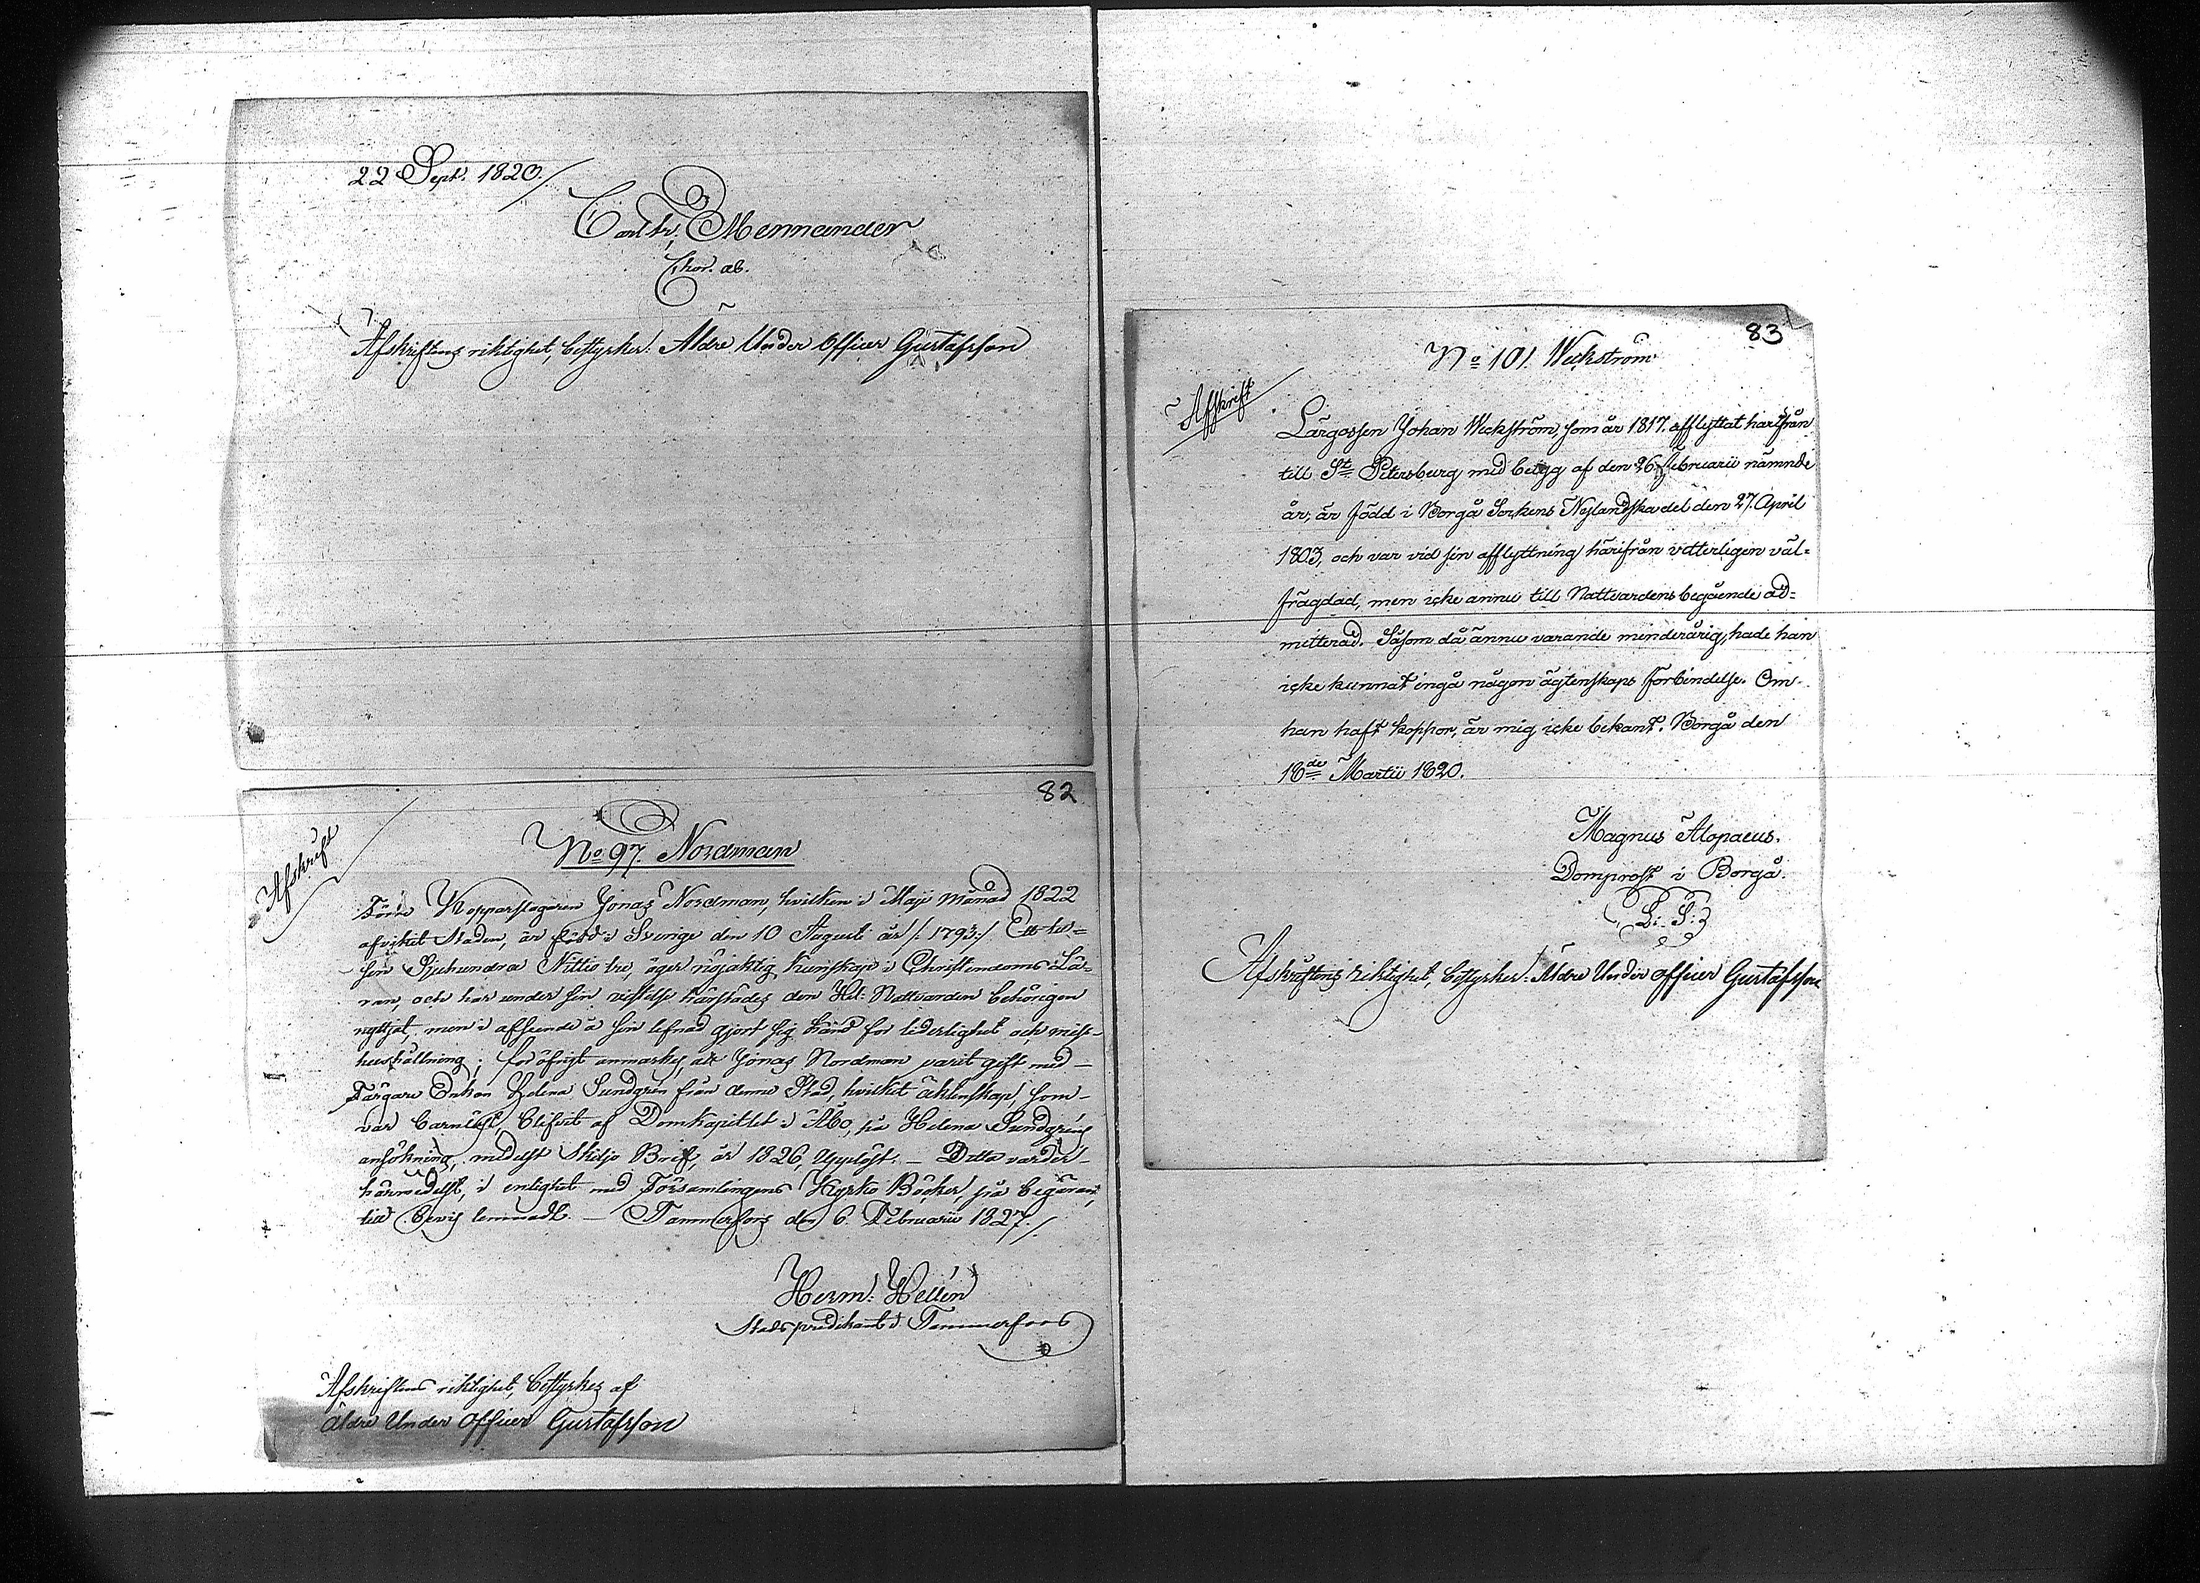 22 Sept. 1820.
Carl Fr. Mennander
Thor. ab.
Afskriftens riktighet, bestyrker: Äldre Under Officer Gustafsson
82
Afskrift
No 97. Nordman
Förre Kopparslagaren Jonas Nordman, hvilken i Maji månad 1822
afvikit Staden, är född i Sverige den 10 Augusti år /: 1793:/ Ett tu-
sen Sjuhundra Nittio tre, äger nöjaktig kunskap i Christendoms Lä-
ran, och har under sin vistelse härstädes den Hel: Nattvarden behörigen
nyttjat, men i afseende å sin lefnad gjort sig känd för liderlighet och miss-
hushållning; för öfrigt anmärkes, att Jonas Nordman varit gift med
Färgare Enkan Helena Sundgrén från denne Stad, hvilket äcktenskap, som
var barnlöst, blifvit af Domkapitlet i Åbo, på Helena Sundgréns
ansökning, medelst Skiljo Bref, år 1826, upplöst. — Detta varder
härmedelst, i enlighet med Församlingens Kyrko Böcker, på begäran,
till bevis lemnadt. — Tammerfors den 6. Februarii 1827./.
Herm: Hellén
Stadspredikant i Tammerfors
Afskriftens riktighet, bestyrkes af
Äldre Under Officer Gustafsson
83
No 101. Weckström
Afskrift
Lärgossen Johan Weckström, som år 1817. afflyttat härifrån
till St Petersburg med betyg af den 26 Februarii nämnde
år, är född i Borgå Sockens Nylandska del den 27. April
1803, och var vid sin afflyttning härifrån vitterligen väl-
frägdad, men icke ännu till Nattvardens begående ad-
mitterad. Såsom då ännu varande minderårig, hade han
icke kunnat ingå någon ägtenskaps förbindelse. Om
han haft koppor, är mig icke bekant. Borgå den
18de Martii 1820.
Magnus Alopaeus.
Domprost i Borgå.
L: S:
Afskriftens riktighet, bestyrker: Äldre Under Officer Gustafsson